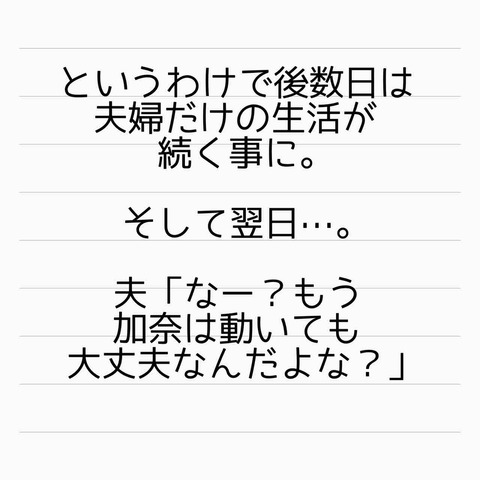 というわけで後数日は
夫婦だけの生活が
続く事に。
そして翌日…。
夫「なー？もう
加奈は動いても
大丈夫なんだよな？」